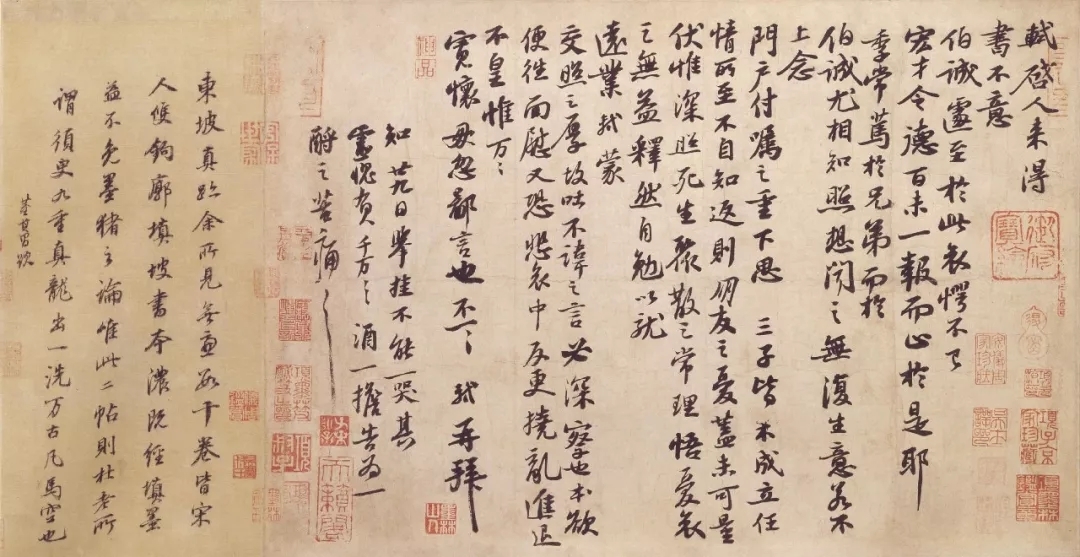 軾啓人来得
書不意
伯誠遽至於此哀愕不已
宏才令德百未一報而止於是耶
季常篤於兄弟而於
伯誠尤相知照想聞之無復生意若不
上念
門户付囑之重下思三子皆未成立任
情所至不自知返則朋友之憂蓋未可量
伏惟深照死生聚散之常理悟憂哀
之無益釋然自勉以就
遠業軾蒙
交照之厚故吐不諱之言必深察也本欲
便往面慰又恐悲哀中反更撓亂進退
不皇惟万万
寬懷毋忽鄙言也不一一軾再拜
知廿九日舉挂不能一哭其
靈愧負千万千万酒一擔告為一
酹之苦痛苦痛
東坡真跡余所見無慮數十卷皆宋
人雙鉤廓填坡書本濃既經填墨
益不免墨猪之論惟此二帖則杜老所
謂須臾九重真龍出一洗万古凡馬空也
董其昌跋
御府寶繪
項子京家珍藏
天籟閣
墨林山人